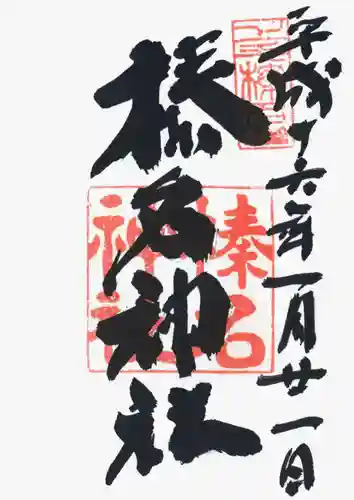 平成十六年一月廿一日
榛名神社
榛名神社